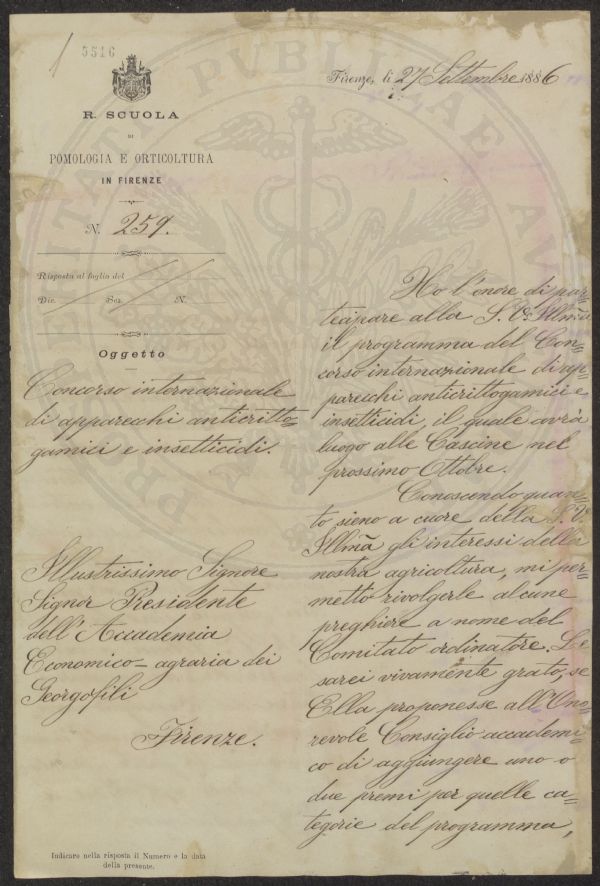 1
5516
R. SCUOLA
DI
POMOLOGIA E ORTICOLTURA
IN FIRENZE
N. 259.
Risposta al foglio del
Div. Sez. N.
Oggetto
Concorso internazionale
di apparecchi anticritto=
gamici e insetticidi.
Illustrissimo Signore
Signor Presidente
dell'Accademia
Economico-agraria dei
Georgofili
Firenze.
Indicare nella risposta il Numero e la data
della presente.
Firenze, li 27 Settembre 1886
Ho l'onore di par=
tecipare alla S. V. Illma
il programma del Con=
corso internazionale di ap=
parecchi anticrittogamici e
insetticidi, il quale avrà
luogo alle Cascine nel
prossimo Ottobre.
Conoscendo quan=
to sieno a cuore della S. V.
Illma gli interessi della
nostra agricoltura, mi per=
metto rivolgerle alcune
preghiere a nome del
Comitato ordinatore. Le
sarei vivamente grato, se
Ella proponesse all'Ono=
revole Consiglio accademi=
co di aggiungere uno o
due premi per quelle ca=
tegorie del programma,